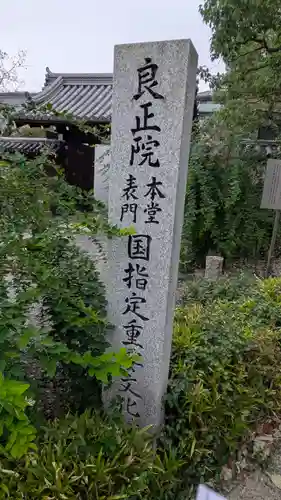 良正院
本堂
表門
国指定重要文化